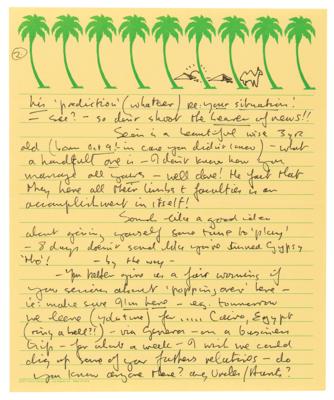 ②
his 'prediction' (whatever) re: your situation!
I see? - so don't shoot the bearer of news!!
Sean is a beautiful wise 3 yr
old (born Oct 9! in case you didn't know) - what
a handful one is - I don't know how you
manage all yours - well done! The fact that
they have all their limbs & faculties is an
accomplishment in itself!
Sounds like a good idea
about giving yourself some time to 'play'
- 8 days doesn't sound like you've turned Gypsy
tho'! - by the way -
- You better give us a fair warning if
your serious about 'popping over' here -
ie: make sure I'm here - eg. tomorrow
we leave (y do time) for ..... Cairo, Egypt
(ring a bell?!) - via Geneva - on a business
trip - for about a week - I wish we could
dig up some of your fathers relatives - do
you know anyone there? any Uncles/Aunts?